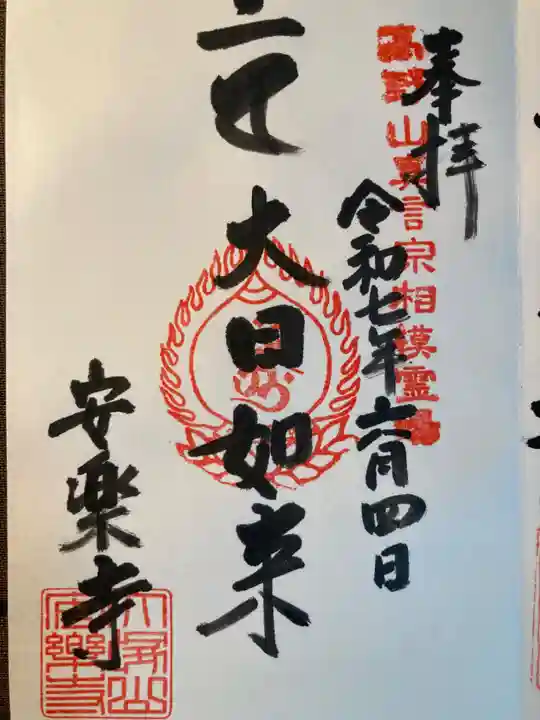 奉拝
高野山真言宗相模霊場
令和七年六月四日
大日如来
安楽寺
安樂寺